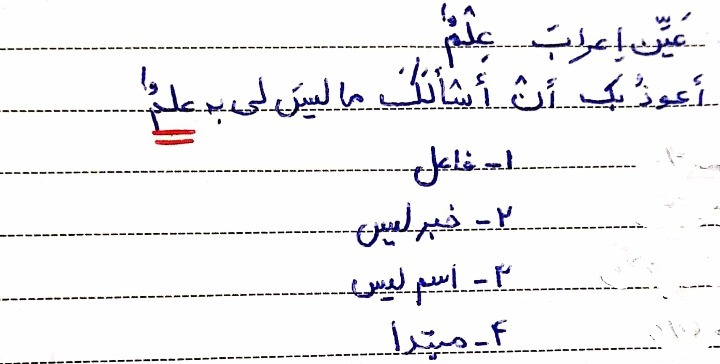 عَيِّن إعرابَ عِلْمٌ
أعوذُ بِكَ أنْ أسْألَكَ ما ليسَ لی بِه علمٌ
۱- فاعل
۲- خبر ليس
۳- اسم ليس
۴- مبتدأ